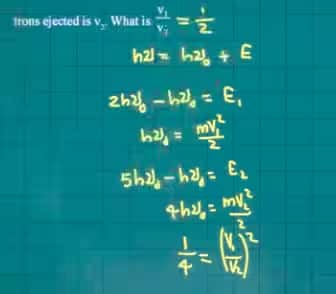 trons ejected is v₂. What is v₁/v₂ = 1/2
hν = hν₀ + E
2hν₀ - hν₀ = E₁
hν₀ = mv₁²/2
5hν₀ - hν₀ = E₂
4hν₀ = mv₂²/2
1/4 = (v₁/v₂)²